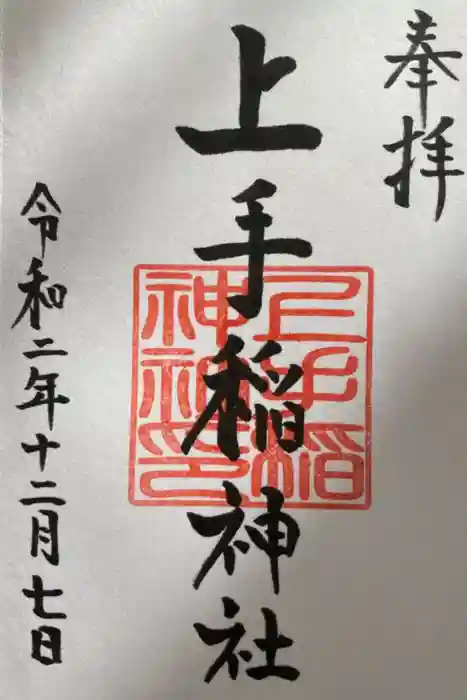 奉拝
上手稲神社
令和二年十二月七日
上手稲
神社